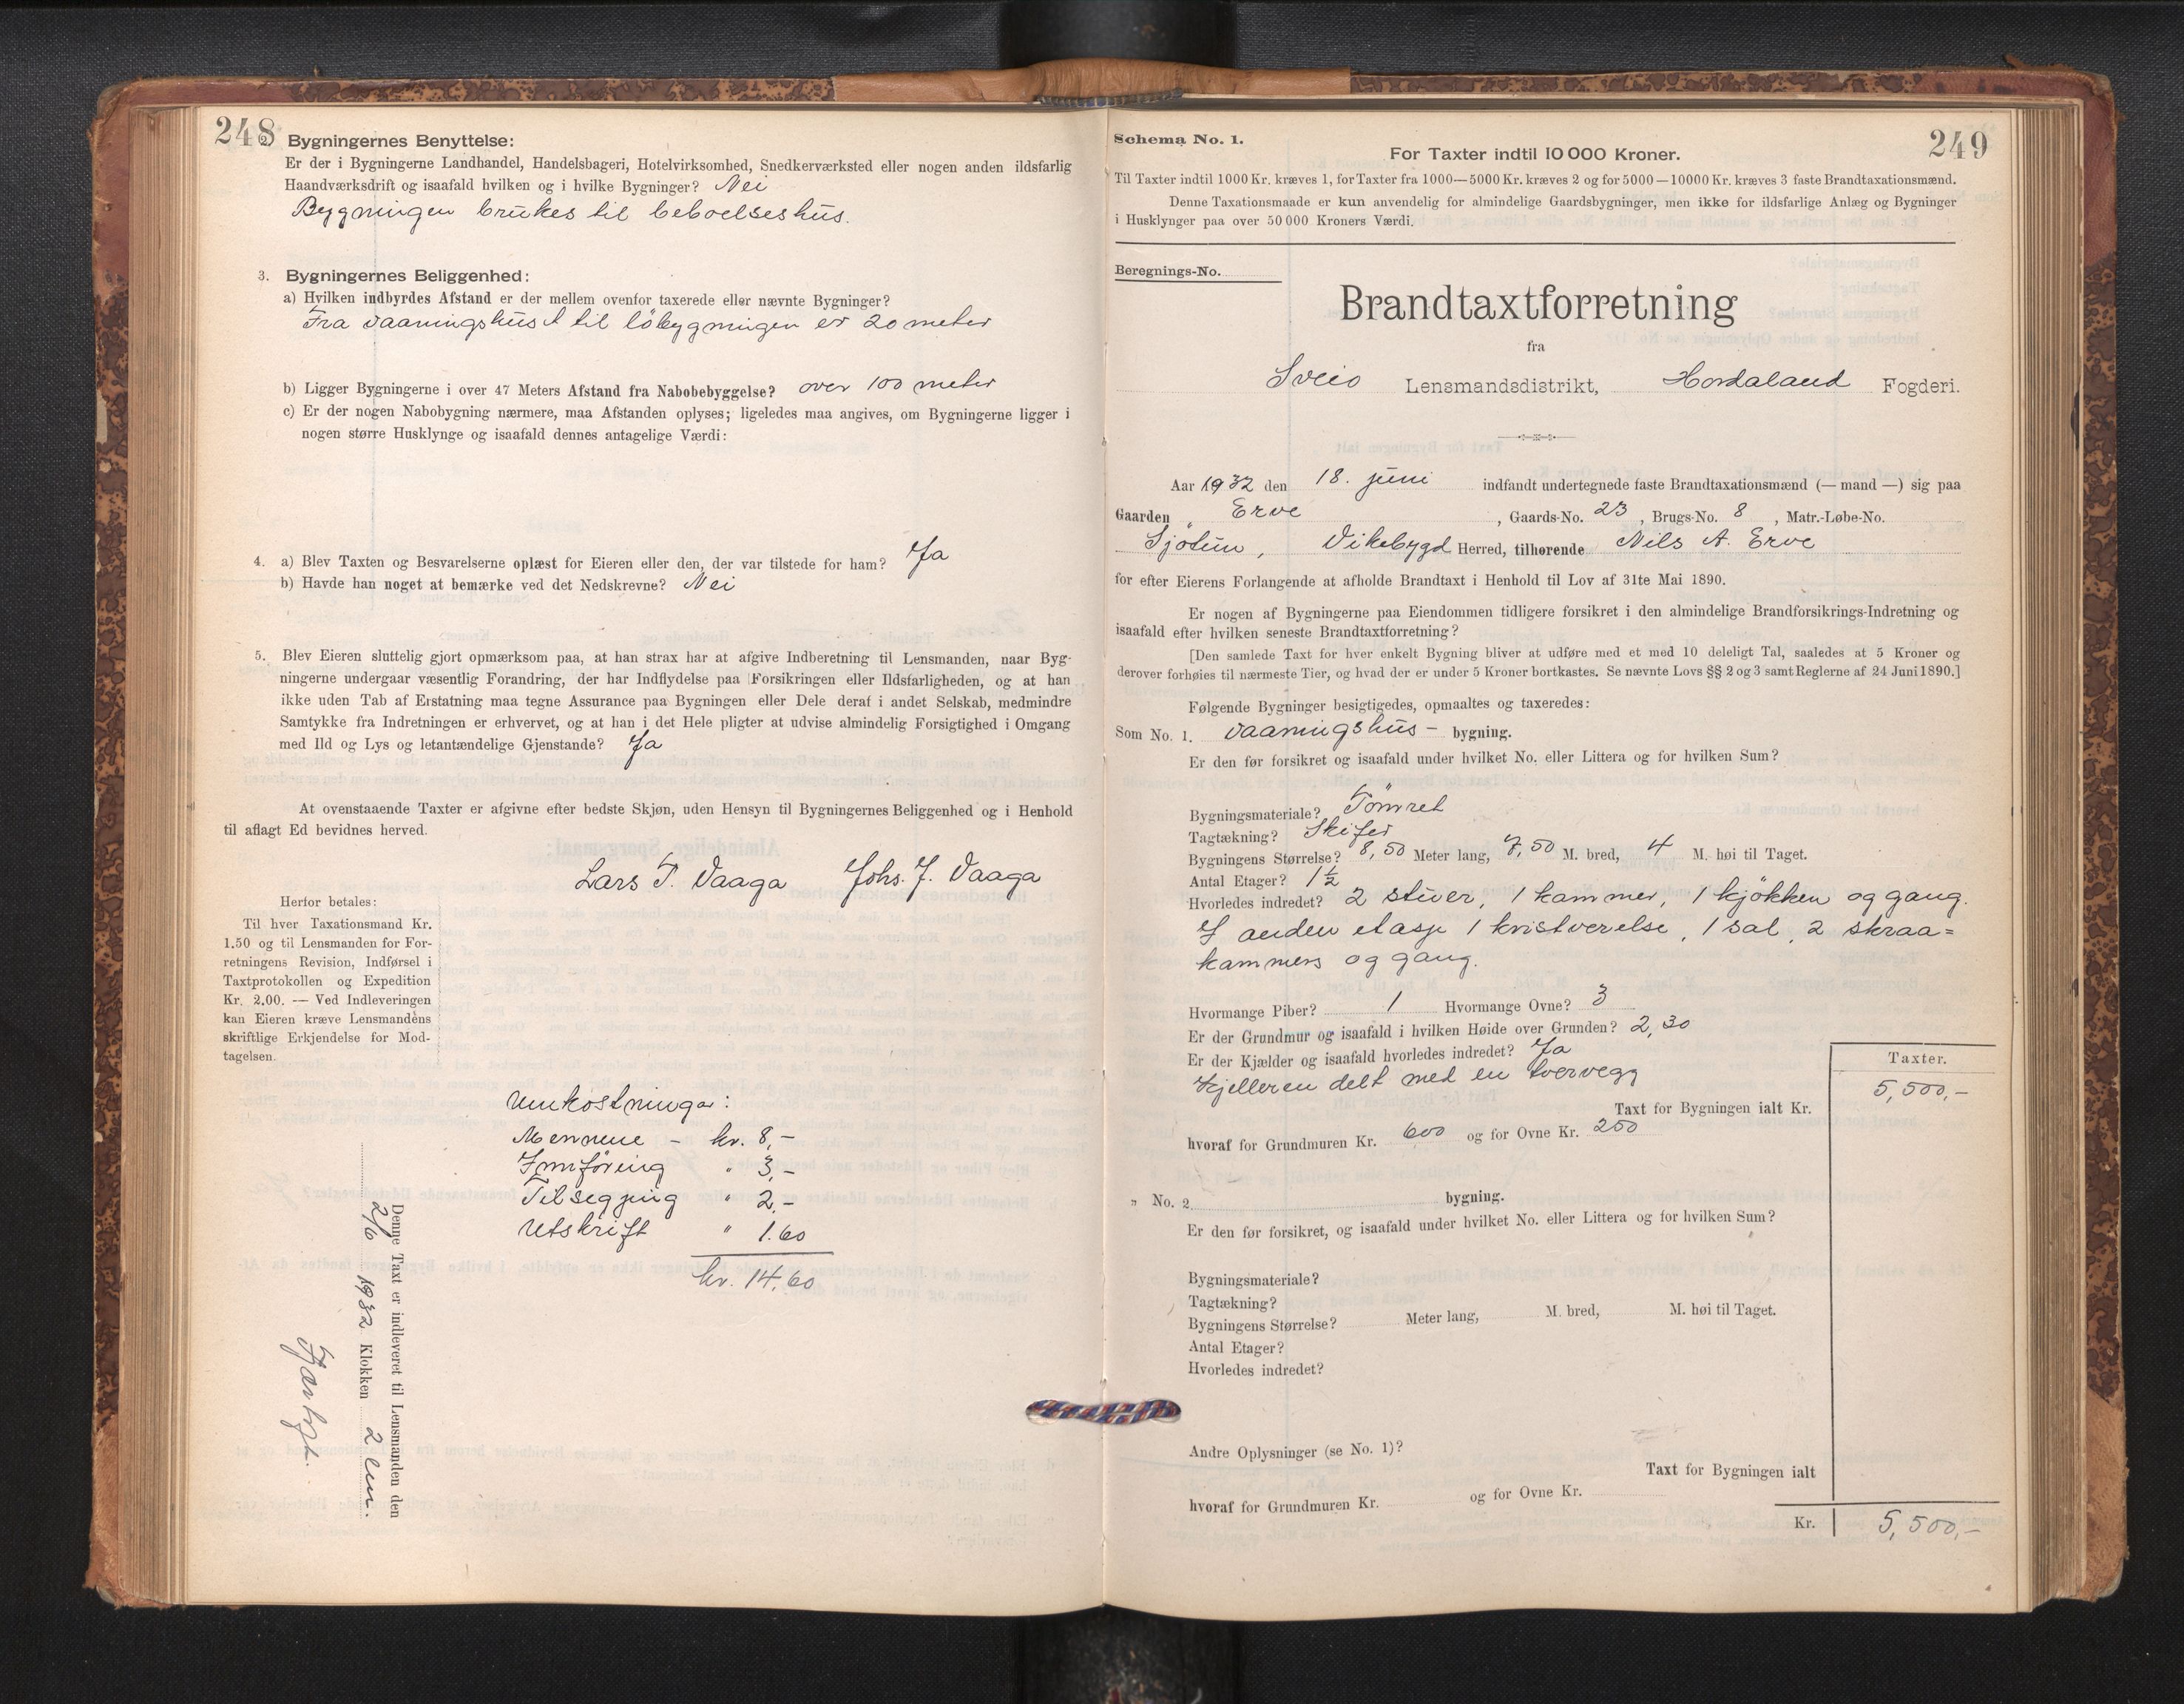 248
2. Bygningernes Benyttelse:
Er der i Bygningerne Landhandel, Handelsbageri, Hotelvirksomhed, Snedkerværksted eller nogen anden ildsfarlig
Haandværksdrift og isaafald hvilken og i hvilke Bygninger? Nei
Bygningen brukes til beboelseshus.
3. Bygningernes Beliggenhed:
a) Hvilken indbyrdes Afstand er der mellem ovenfor taxerede eller nævnte Bygninger?
Fra vaaningshuset til löbygningen er 20 meter
b) Ligger Bygningerne i over 47 Meters Afstand fra Nabobebyggelse? over 100 meter
c) Er der nogen Nabobygning nærmere, maa Afstanden oplyses; ligeledes maa angives, om Bygningerne ligger i
nogen større Husklynge og isaafald dennes antagelige Værdi:
4. a) Blev Taxten og Besvarelserne oplæst for Eieren eller den, der var tilstede for ham? Ja
b) Havde han noget at bemærke ved det Nedskrevne? Nei
5. Blev Eieren sluttelig gjort opmærksom paa, at han strax har at afgive Indberetning til Lensmanden, naar Byg-
ningerne undergaar væsentlig Forandring, der har Indflydelse paa Forsikringen eller Ildsfarligheden, og at han
ikke uden Tab af Erstatning maa tegne Assurance paa Bygningen eller Dele deraf i andet Selskab, medmindre
Samtykke fra Indretningen er erhvervet, og at han i det Hele pligter at udvise almindelig Forsigtighed i Omgang
med Ild og Lys og letantændelige Gjenstande? Ja
At ovenstaaende Taxter er afgivne efter bedste Skjøn, uden Hensyn til Bygningernes Beliggenhed og i Henhold
til aflagt Ed bevidnes herved.
Lars T. Vaaga Johs. J. Vaaga
Herfor betales:
Til hver Taxationsmand Kr.
1.50 og til Lensmanden for For-
retningens Revision, Indførsel i
Taxtprotokollen og Expedition
Kr. 2.00. — Ved Indleveringen
kan Eieren kræve Lensmandens
skriftlige Erkjendelse for Mod-
tagelsen.
Umkostningar:
Mennene - kr. 8,-
Innföring " 3,-
Tilsegjing " 2,-
Utskrift " 1.60
kr. 14,60
Denne Taxt er indleveret til Lensmanden den
2/6 1932 Klokken 2 em.
249
Schema No. 1.
For Taxter indtil 10 000 Kroner.
Til Taxter indtil 1000 Kr. kræves 1, for Taxter fra 1000—5000 Kr. kræves 2 og for 5000—10000 Kr. kræves 3 faste Brandtaxationsmænd.
Denne Taxationsmaade er kun anvendelig for almindelige Gaardsbygninger, men ikke for ildsfarlige Anlæg og Bygninger
i Husklynger paa over 50 000 Kroners Værdi.
Beregnings-No.
Brandtaxtforretning
fra
Sveio Lensmandsdistrikt, Hordaland Fogderi.
Aar 1932 den 18. juni indfandt undertegnede faste Brandtaxationsmænd (— mand —) sig paa
Gaarden Erve, Gaards-No. 23, Brugs-No. 8, Matr.-Løbe-No.
Sjotun, Vikebygd Herred, tilhørende Nils A. Erve
for efter Eierens Forlangende at afholde Brandtaxt i Henhold til Lov af 31te Mai 1890.
Er nogen af Bygningerne paa Eiendommen tidligere forsikret i den almindelige Brandforsikrings-Indretning og
isaafald efter hvilken seneste Brandtaxtforretning?
[Den samlede Taxt for hver enkelt Bygning bliver at udføre med et med 10 deleligt Tal, saaledes at 5 Kroner og
derover forhøies til nærmeste Tier, og hvad der er under 5 Kroner bortkastes. Se nævnte Lovs §§ 2 og 3 samt Reglerne af 24 Juni 1890.]
Følgende Bygninger besigtigedes, opmaaltes og taxeredes:
Som No. 1. vaaningshus - bygning.
Er den før forsikret og isaafald under hvilket No. eller Littera og for hvilken Sum?
Bygningsmateriale? Tömret
Tagtækning? Skifer
Bygningens Størrelse? 8,50 Meter lang, 7,50 M. bred, 4 M. høi til Taget.
Antal Etager? 1 ½
Hvorledes indredet? 2 stuer, 1 kammer, 1 kjökken og gang.
I anden etasje 1 kvistverelse, 1 sal, 2 skraa=
kammers og gang.
Hvormange Piber? 1 Hvormange Ovne? 3
Er der Grundmur og isaafald i hvilken Høide over Grunden? 2,30
Er der Kjælder og isaafald hvorledes indredet? Ja
Kjelleren delt med en tvervegg
Taxter.
5,500,-
Taxt for Bygningen ialt Kr.
hvoraf for Grundmuren Kr. 600 og for Ovne Kr. 250
" No. 2 bygning.
Er den før forsikret, og isaafald under hvilket No. eller Littera og for hvilken Sum?
Bygningsmateriale?
Tagtækning?
Bygningens Størrelse? Meter lang, M. bred, M. høi til Taget.
Antal Etager?
Hvorledes indredet?
Andre Oplysninger (se No. 1)?
Taxt for Bygningen ialt
hvoraf for Grundmuren Kr. og for Ovne Kr.
Kr. 5,500,-